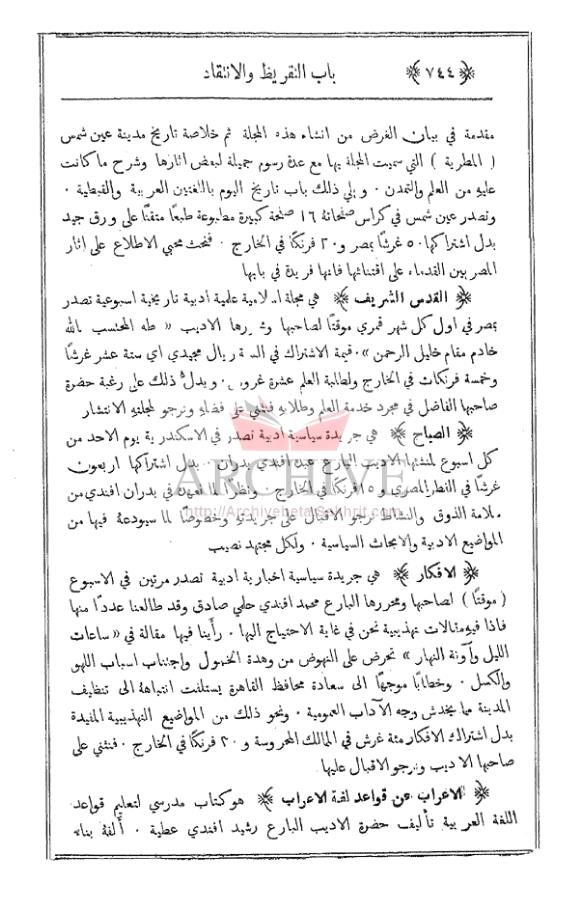 ﴿ ٧٤٤ ﴾ باب التقريظ والانتقاد
مقدمة في بيان الغرض من انشاء هذه المجلة ثم خلاصة تاريخ مدينة عين شمس
( المطرية ) التي سميت المجلة بها مع عدة رسوم جميلة لبعض اثارها وشرح ما كانت
عليه من العلم والتمدن . ويلي ذلك باب تاريخ اليوم باللغتين العربية والقبطية .
وتصدر عين شمس في كراس صفحاته ١٦ صفحة كبيرة مطبوعة طبعًا متقنًا على ورق جيد
بدل اشتراكها ٥٠ غرشًا بمصر و٢٠ فرنكًا في الخارج . فنحث محبي الاطلاع على اثار
المصربين القدماء على اقتنائها فانها فريدة في بابها
﴿ القدس الشريف ﴾ هي مجلة اسلامية علمية أدبية تاريخية اسبوعية تصدر
بمصر في اول كل شهر قمري موقتًا لصاحبها ومحررها الاديب « طه المحتسب بالله
خادم مقام خليل الرحمن » . قيمة الاشتراك في السنة ريال مجيدي اي ستة عشر غرشًا
وخمسة فرنكات في الخارج ولطالبة العلم عشرة غروش . ويدل ذلك على رغبة حضرة
صاحبها الفاضل في مجرد خدمة العلم وطلابه فنثني على فضله ونرجو لمجلته الانتشار
﴿ الصباح ﴾ هي جريدة سياسية ادبية تصدر في الاسكندرية يوم الاحد من
كل اسبوع لمنشئها الاديب البارع عبده افندي بدران . بدل اشتراكها اربعون
غرشًا في القطر المصري و١٥ فرنكًا في الخارج . ونظرًا لما نعهده في بدران افندي من
سلامة الذوق والنشاط نرجو الاقبال على جريدته وخصوصًا لما سيودعه فيها من
المواضيع الادبية والابحاث السياسية . ولكل مجتهد نصيب
﴿ الافكار ﴾ هي جريدة سياسية اخبارية ادبية تصدر مرتين في الاسبوع
( موقتًا ) لصاحبها ومحررها البارع محمد افندي حلمي صادق وقد طالعنا عددًا منها
فاذا فيه مقالات تهذيبية نحن في غاية الاحتياج اليها . رأينا فيها مقالة في « ساعات
الليل وآونة النهار » تحرض على النهوض من وهدة الخمول واجتناب اسباب اللهو
والكسل . وخطابًا موجهًا الى سعادة محافظ القاهرة يستلفت انتباهه الى تنظيف
المدينة مما يخدش وجه الآداب العمومية . ونحو ذلك من المواضيع التهذيبية المفيدة
بدل اشتراك الافكار مئة غرش في الممالك المحروسة و٢٠ فرنكًا في الخارج . فنثني على
صاحبها الاديب ونرجو الاقبال عليها
﴿ الاعراب عن قواعد لغة الاعراب ﴾ هو كتاب مدرسي لتعليم قواعد
اللغة العربية تأليف حضرة الاديب البارع رشيد افندي عطية . ألفه بناء
ARCHIVE
http://Archivebeta.Sakhrit.com